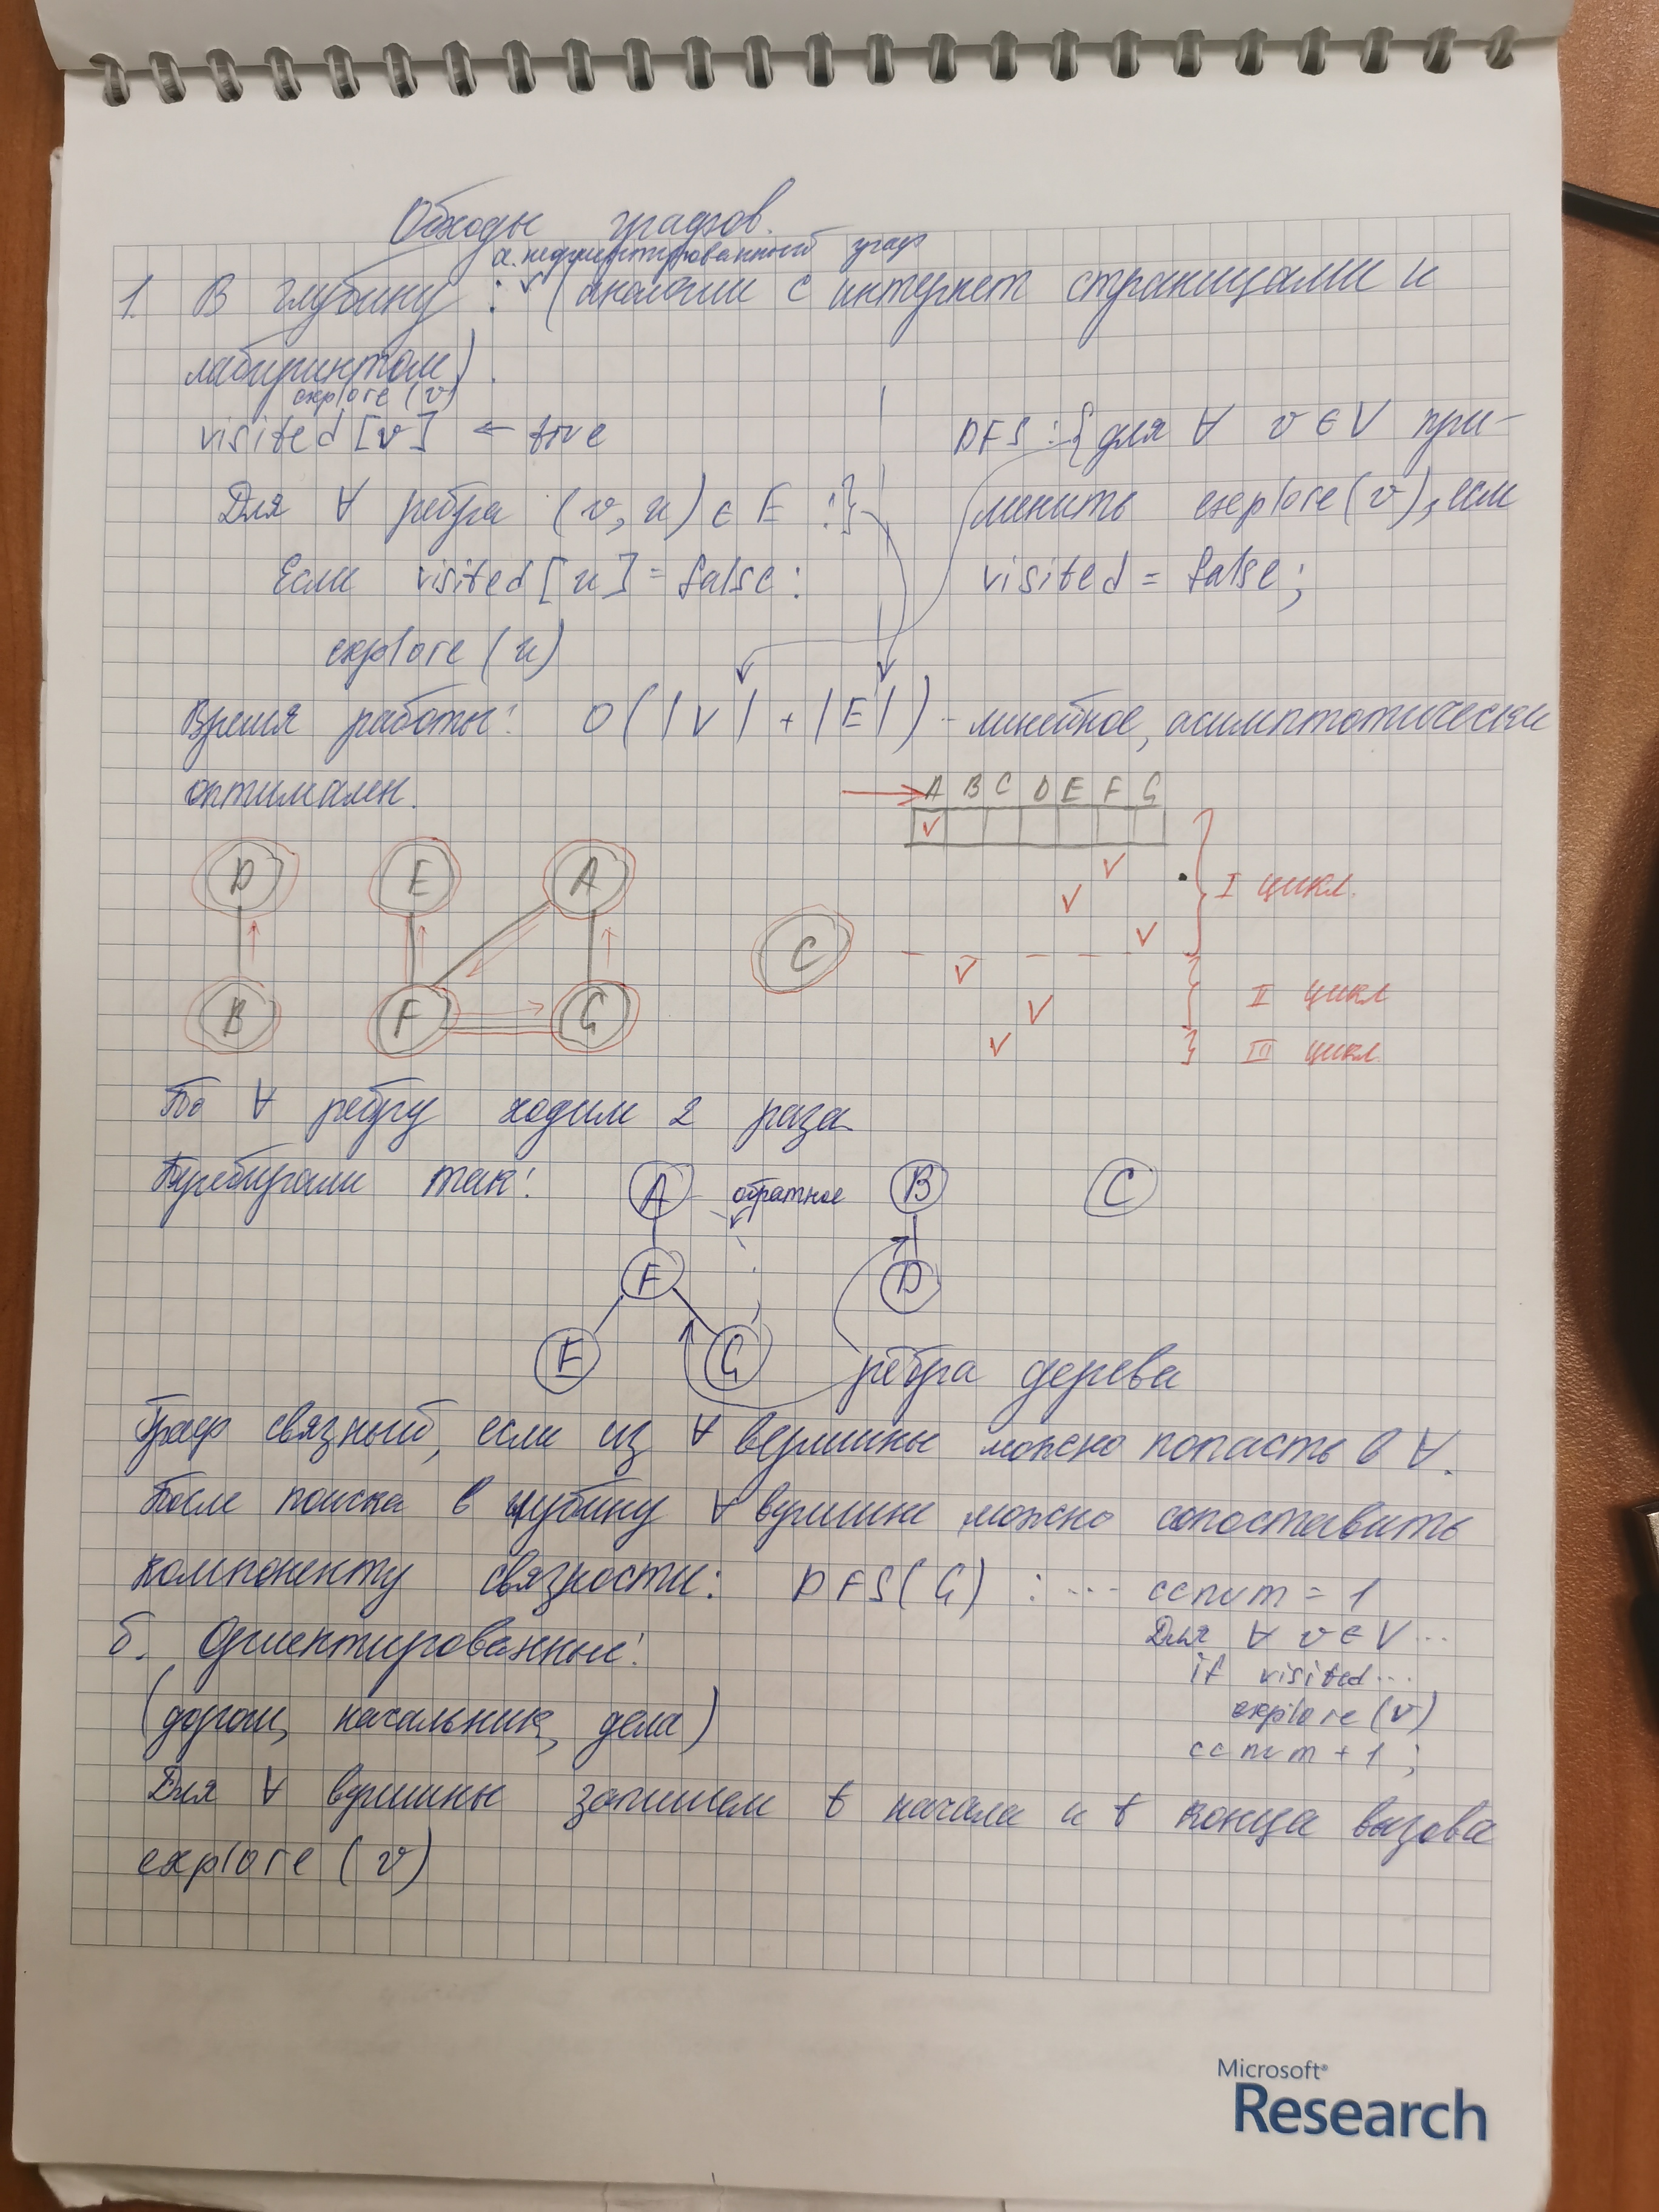 Обходы графов.
а. неориентированный граф
1. В глубину : (аналогии с интернет страницами и
лабиринтом).
explore (v)
visited [v] ← true
Для ∀ ребра (v, u) ∈ E :}
Если visited [u] = false :
explore (u)
DFS :{для ∀ v ∈ V при-
менить explore (v), если
visited = false ;
Время работы: O(|V| + |E|) - линейное, асимптотически
оптимален.
A B C D E F G
D E A
C
B F G
I цикл.
II цикл
III цикл.
По ∀ ребру ходим 2 раза
Перебирали так:
A обратное B C
F D
E G
рёбра дерева
Граф связный, если из ∀ вершины можно попасть в ∀.
После поиска в глубину ∀ вершине можно сопоставить
компоненту связности: DFS(G) : ...
ccnum = 1
Для ∀ v ∈ V ...
if visited ...
explore (v)
ccnum + 1 ;
б. Ориентированные:
(дороги, начальник, дела)
Для ∀ вершины запишем t начала и t конца вызова
explore (v)
Microsoft®
Research